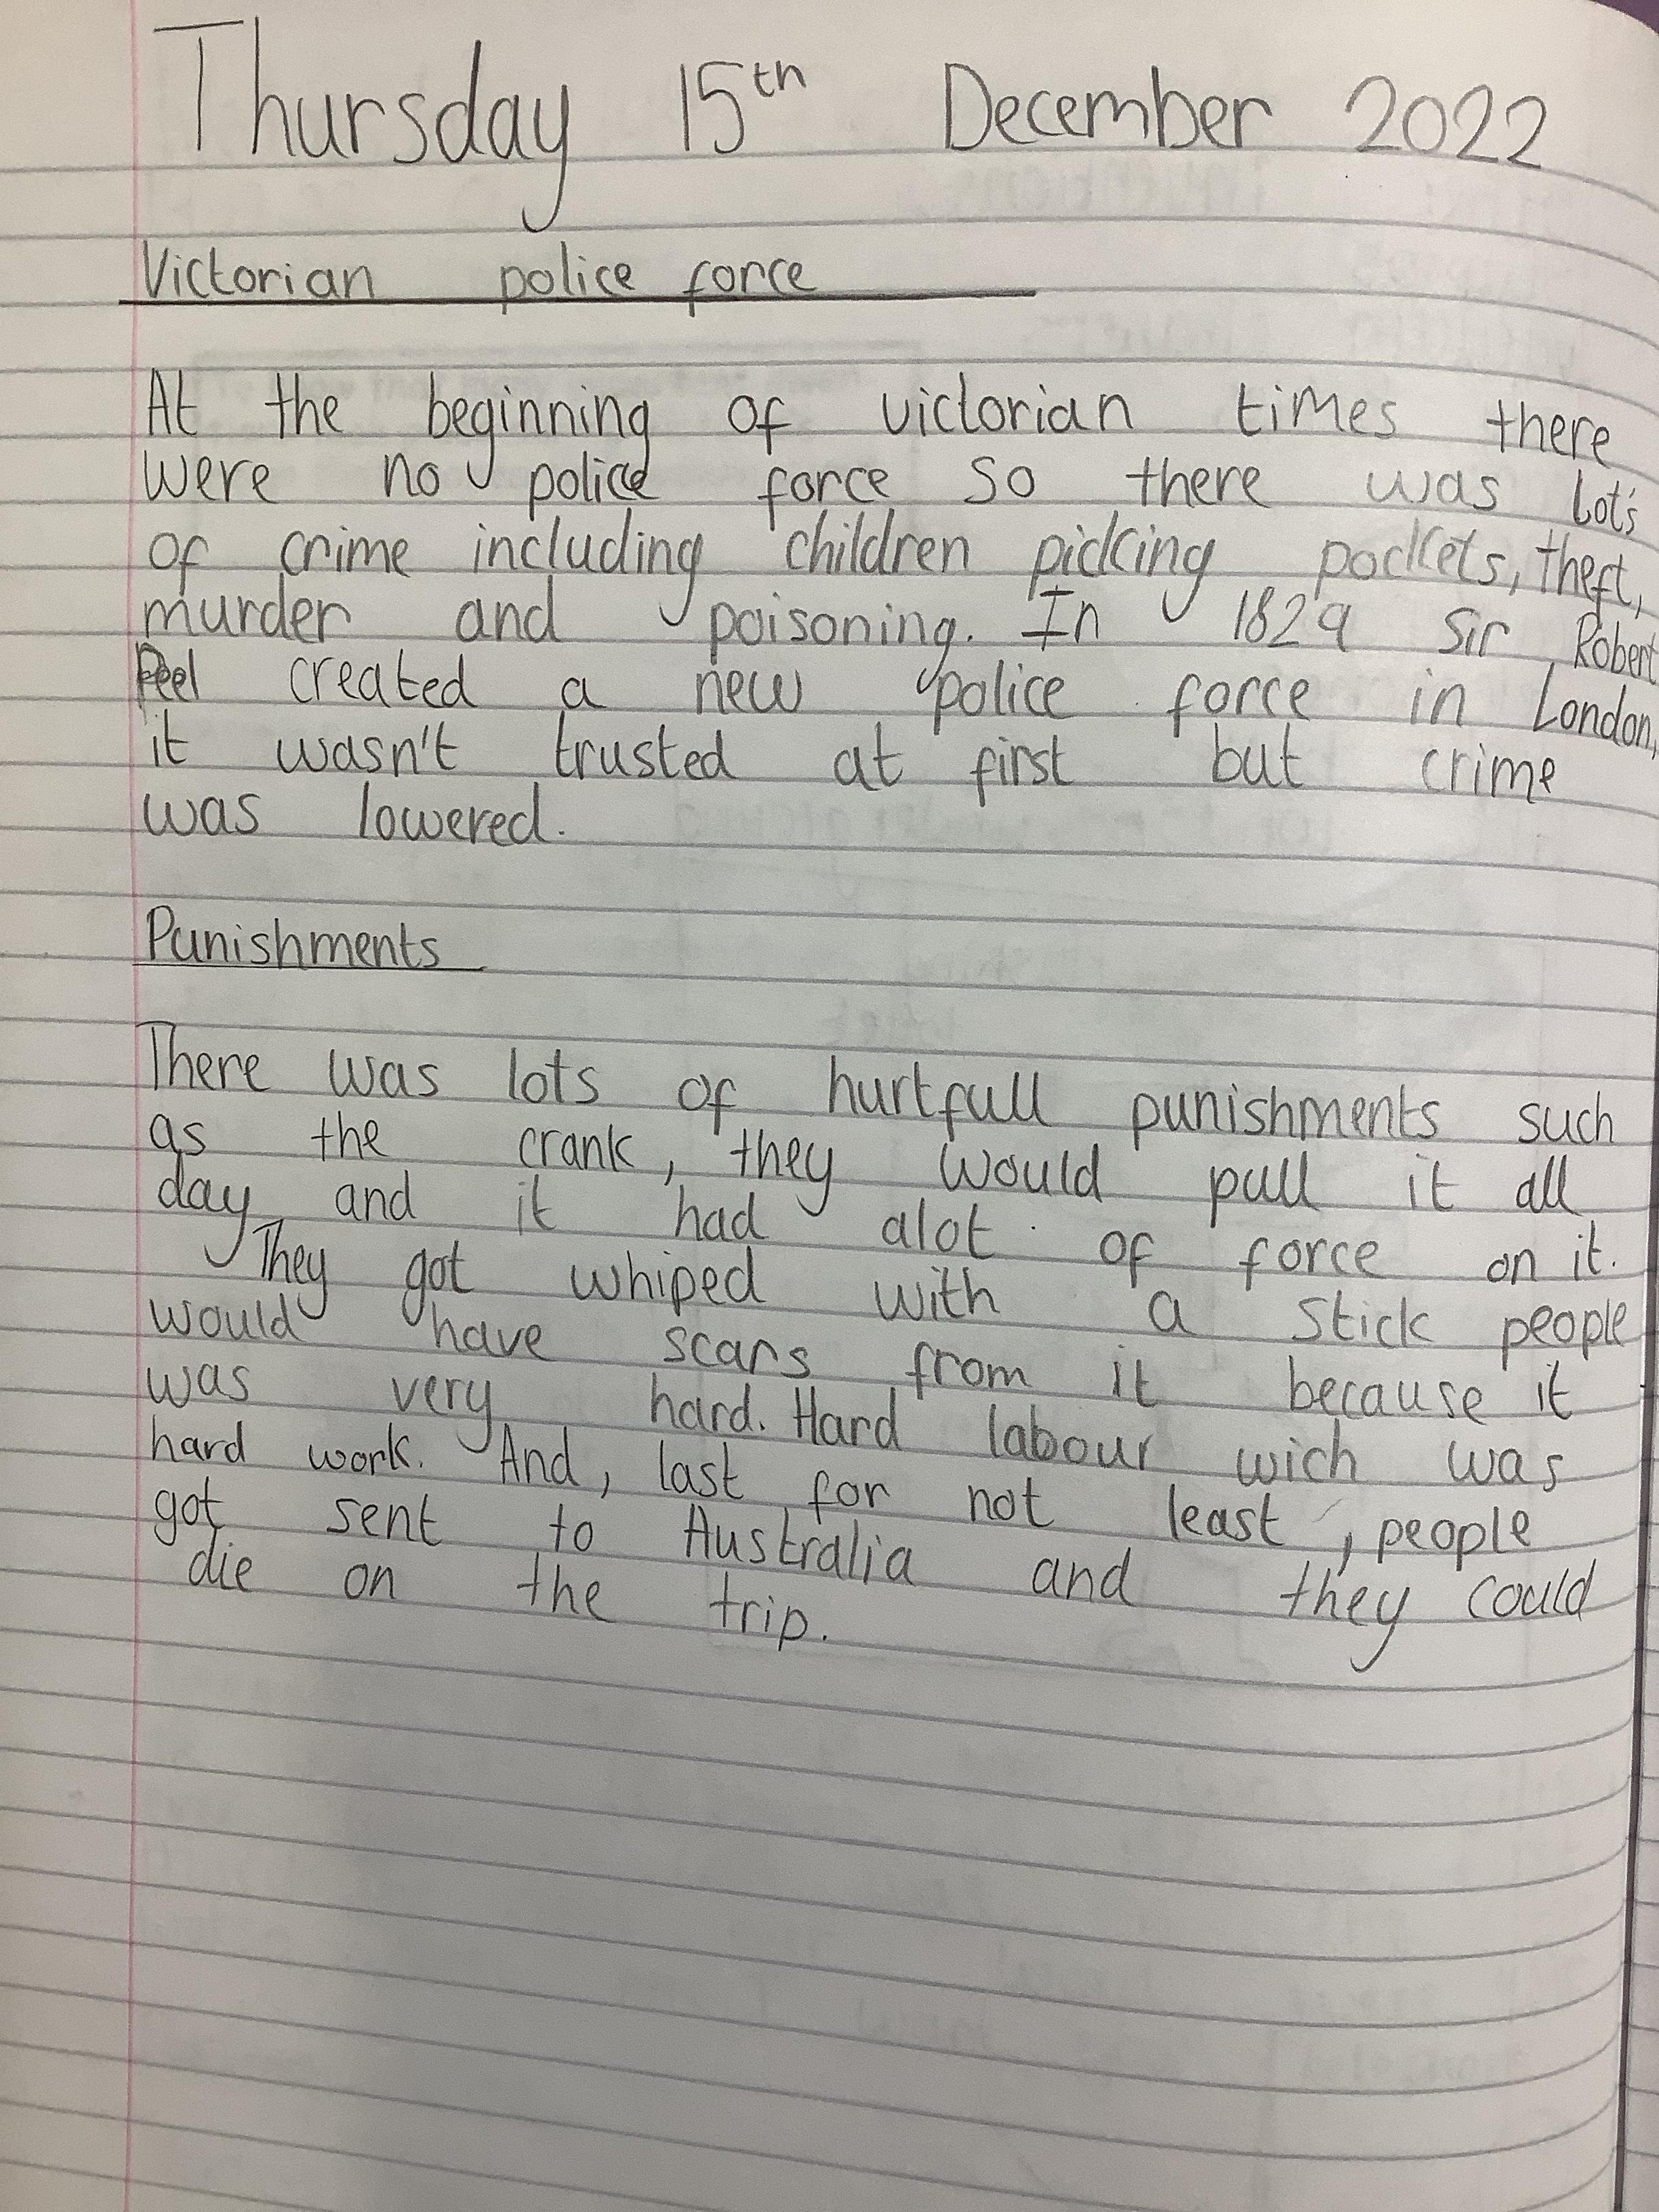 Thursday 15th December 2022
Victorian police force
At the beginning of victorian times there
were no police force so there was lot's
of crime including children picking pockets, theft,
murder and poisoning. In 1829 Sir Robert
Peel created a new police force in London,
it wasn't trusted at first but crime
was lowered.
Punishments
There was lots of hurtfull punishments such
as the crank, they would pull it all
day and it had alot of force on it.
They got whiped with a stick people
would have scars from it because it
was very hard. Hard labour wich was
hard work. And, last for not least, people
got sent to Australia and they could
die on the trip.